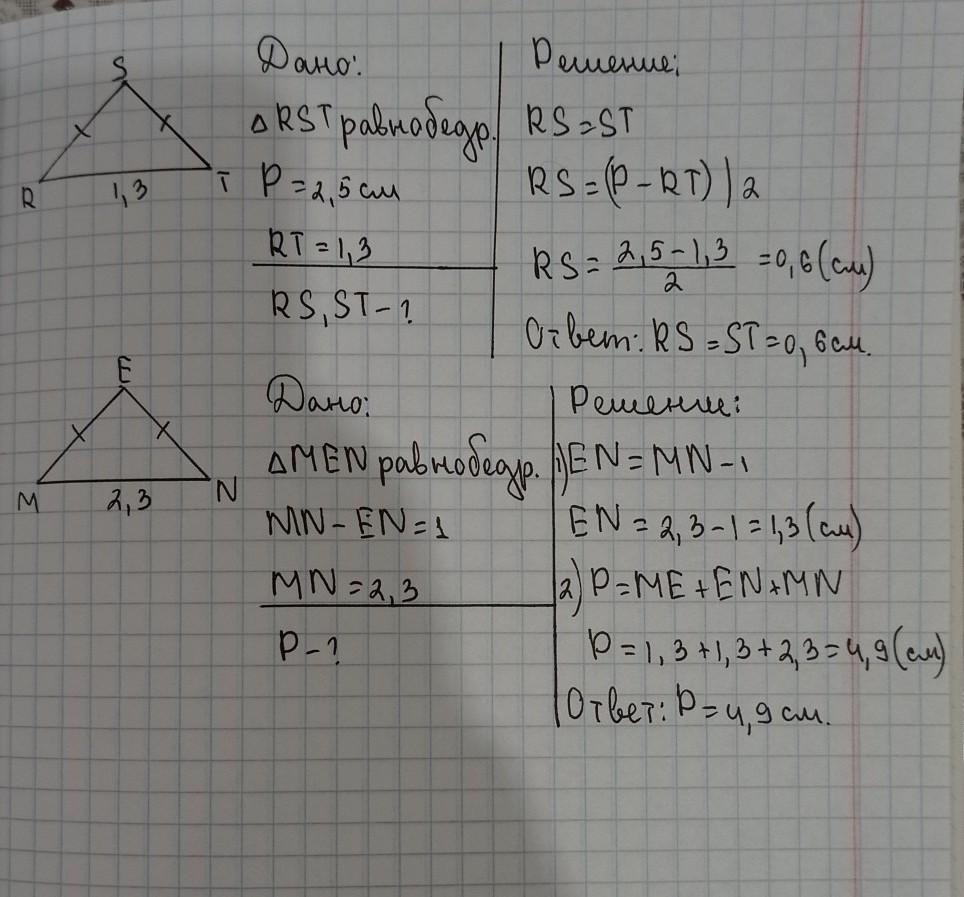 S
R
1,3
T
Дано:
△RST равнобедр.
P = 2,5 см
RT = 1,3
RS, ST - ?
Решение:
RS = ST
RS = (P - RT) | 2
RS = 2,5 - 1,3 / 2 = 0,6 (см)
Ответ: RS = ST = 0,6 см.
E
M
2,3
N
Дано:
△MEN равнобедр.
MN - EN = 1
MN = 2,3
P - ?
Решение:
1) EN = MN - 1
EN = 2,3 - 1 = 1,3 (см)
2) P = ME + EN + MN
P = 1,3 + 1,3 + 2,3 = 4,9 (см)
Ответ: P = 4,9 см.